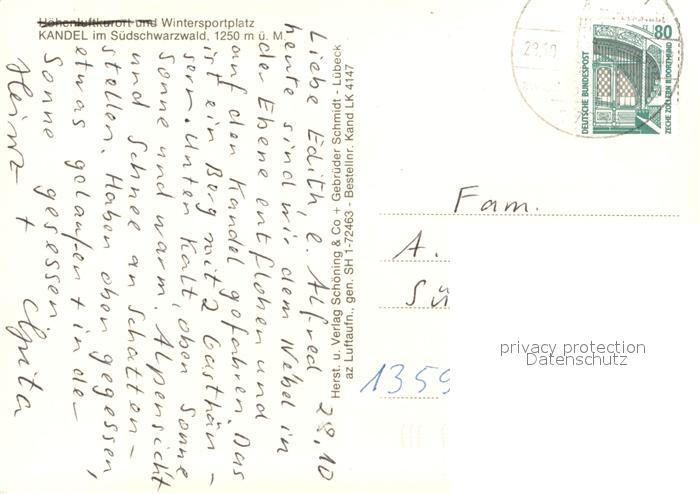 Höhenluftkurort und Wintersportplatz
KANDEL im Südschwarzwald, 1250 m ü. M.
Liebe Edith, l. Alfred 28.10
heute sind wir dem Nebel in
der Ebene entflohen und
auf den Kandel gefahren. Das
ist ein Berg mit 2 Gasthäu-
sern. Unten kalt, oben Sonne
Sonne und warm. Alpensicht
und Schnee an Schatten-
stellen. Haben oben gegessen,
etwas gelaufen + in der
Sonne gesessen.
Heinz +
Herst. u. Verlag Schöning & Co + Gebrüder Schmidt - Lübeck
az Luftaufn., gen. SH 1-72463 - Bestellnr. Kand LK 4147
80
DEUTSCHE BUNDESPOST
ZECHE ZOLLERN II DORTMUND
Fam.
A.
Sü
1359
privacy protection
Datenschutz